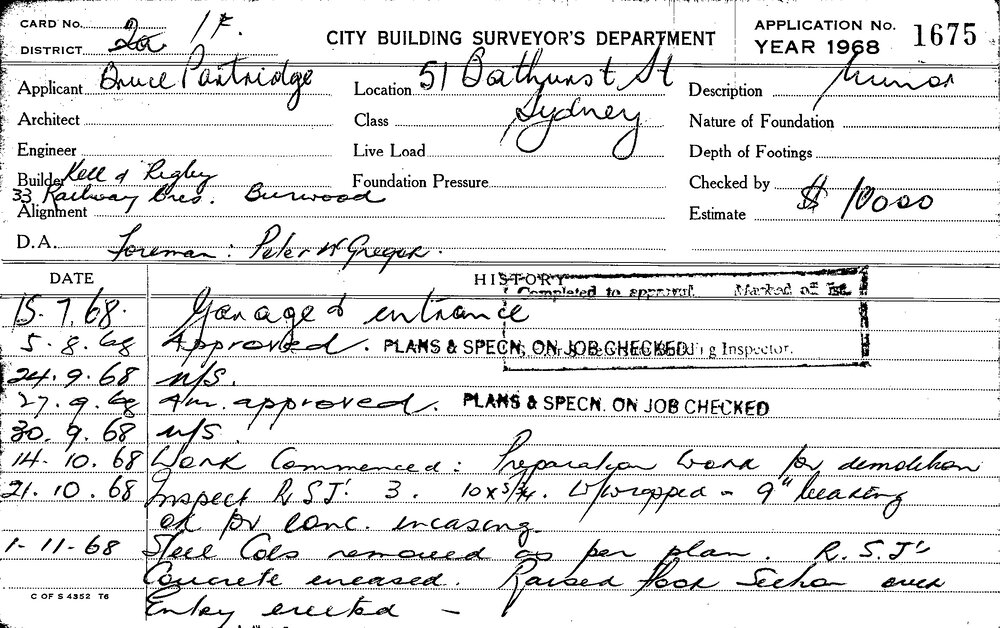 CARD No. 1F.
DISTRICT 2a
CITY BUILDING SURVEYOR'S DEPARTMENT
APPLICATION No. 1675
YEAR 1968
Applicant Bruce Partridge
Location 51 Bathurst St
Description Minor
Architect
Class Sydney
Nature of Foundation
Engineer
Live Load
Depth of Footings
Builder Kell & Rigby
Foundation Pressure
Checked by
33 Railway Cres. Burwood
Alignment
Estimate $ 10000
D.A. Foreman: Peter McGregor.
DATE HISTORY
Completed to approval. Marked off list.
15.7.68. Garage & entrance
5.8.68 Approved. PLANS & SPECN, ON JOB CHECKED
Inspector.
24.9.68 n/s.
27.9.68 Am. approved. PLANS & SPECN. ON JOB CHECKED
30.9.68 n/s.
14.10.68 Work Commenced: Preparation work for demolition
21.10.68 Inspect R.S.J' 3. 10x5¾. W/wrapped - 9" bearing
ok for conc. incasing.
1-11-68 Steel Cols removed as per plan. R.S.J's
Concrete encased. Raised floor Section over
Entry erected -
C OF S 4352 T6